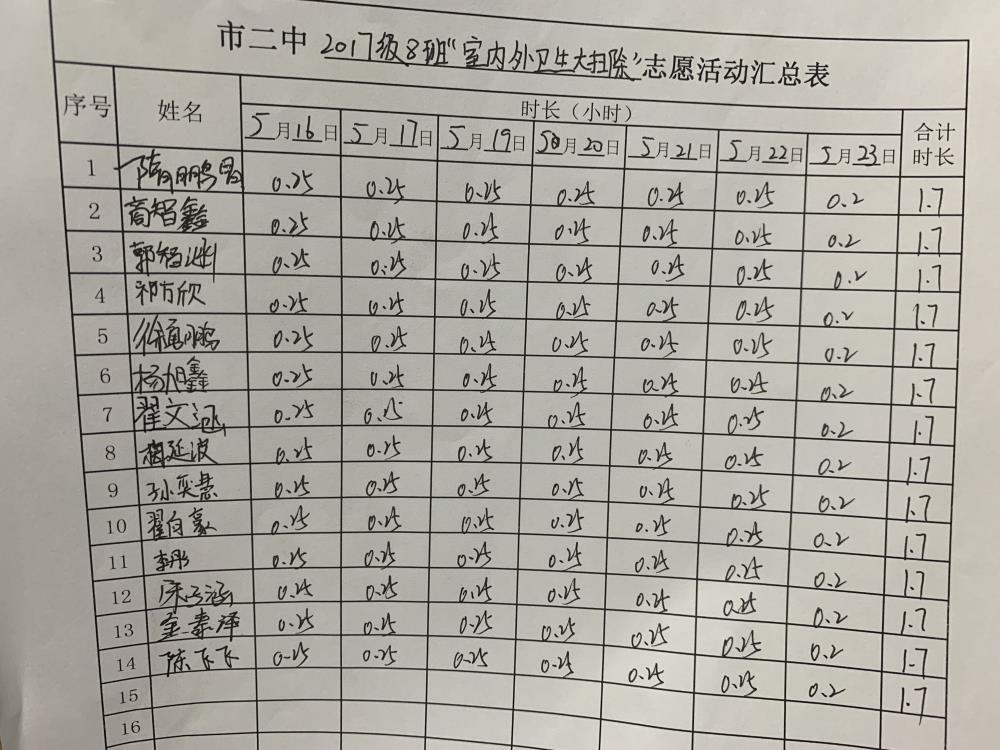 市二中 2017级8班"室内外卫生大扫除"志愿活动汇总表
序号 姓名 时长(小时) 合计时长
5月16日 5月17日 5月19日 5月20日 5月21日 5月22日 5月23日
1 隋鹏昌 0.25 0.25 0.25 0.25 0.25 0.25 0.2 1.7
2 高智鑫 0.25 0.25 0.25 0.25 0.25 0.25 0.2 1.7
3 郭智渊 0.25 0.25 0.25 0.25 0.25 0.25 0.2 1.7
4 祁方欣 0.25 0.25 0.25 0.25 0.25 0.25 0.2 1.7
5 徐鹏 0.25 0.25 0.25 0.25 0.25 0.25 0.2 1.7
6 杨旭鑫 0.25 0.25 0.25 0.25 0.25 0.25 0.2 1.7
7 翟文涵 0.25 0.25 0.25 0.25 0.25 0.25 0.2 1.7
8 延波 0.25 0.25 0.25 0.25 0.25 0.25 0.2 1.7
9 孙奕慧 0.25 0.25 0.25 0.25 0.25 0.25 0.2 1.7
10 翟向豪 0.25 0.25 0.25 0.25 0.25 0.25 0.2 1.7
11 李彤 0.25 0.25 0.25 0.25 0.25 0.25 0.2 1.7
12 宋子涵 0.25 0.25 0.25 0.25 0.25 0.25 0.2 1.7
13 泽 0.25 0.25 0.25 0.25 0.25 0.25 0.2 1.7
14 陈飞飞 0.25 0.25 0.25 0.25 0.25 0.25 0.2 1.7
15
16